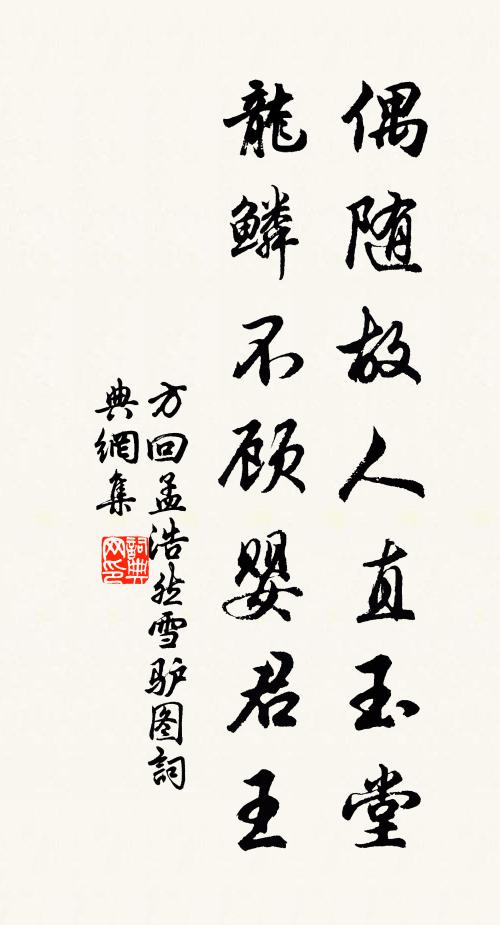 偶随故人直玉堂
龍鳞不顾婴君王
方回孟浩然雪驴图詞
典網集
詞典
网印